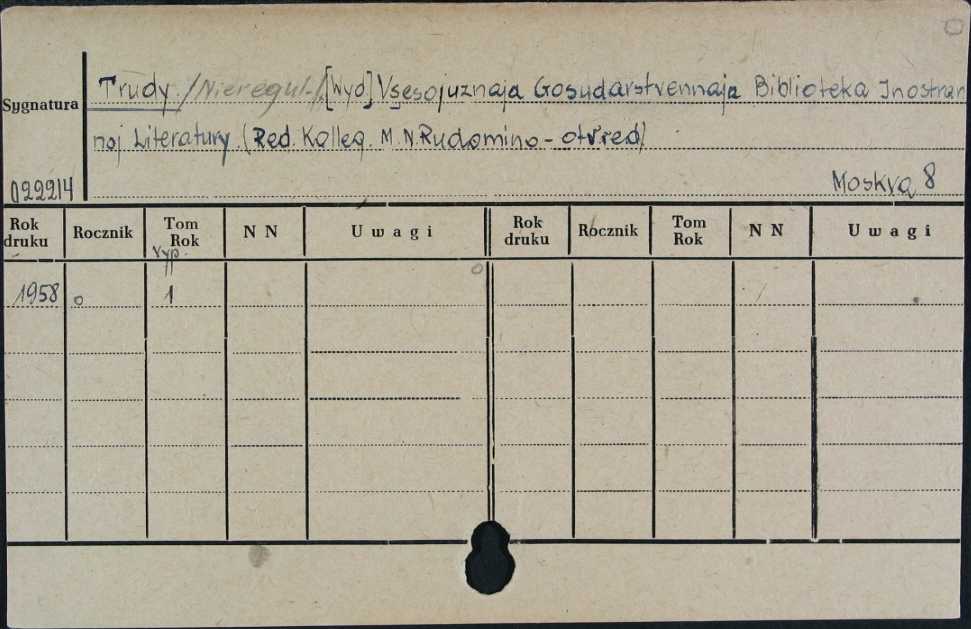 Trudy. /Nieregul./. [Wyd] Vsesojuznaja Gosudarstvennaja Biblioteka Inostran
Sygnatura
noj Literatury. (Red. Kolleg. M. N. Rudomino - otv. red)
022214
Moskva 8
Rok druku Rocznik Tom Rok N N Uwagi Rok druku Rocznik Tom Rok N N Uwagi
Vyp.
1958 o 1